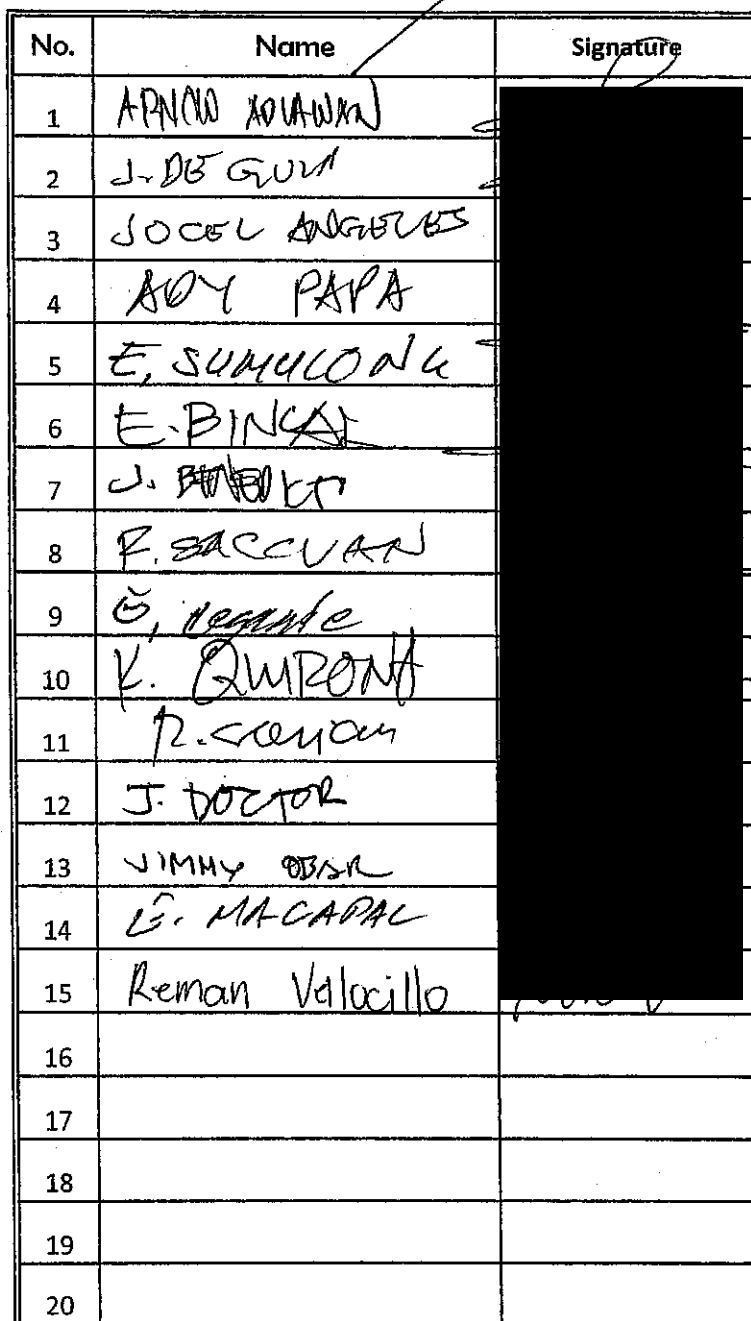 No. Name Signature
1
2 J. DE GUIA
3 JOCEL ANGELES
4 ADY PAPA
5 E. SUMULONG
6 E. BINCAL
7 J.
8 R. SACCUAN
9
10 K. QUIRONA
11 R.
12 J. DOCTOR
13 JIMMY
14 E. MACAPAL
15 Reman Velocillo
16
17
18
19
20